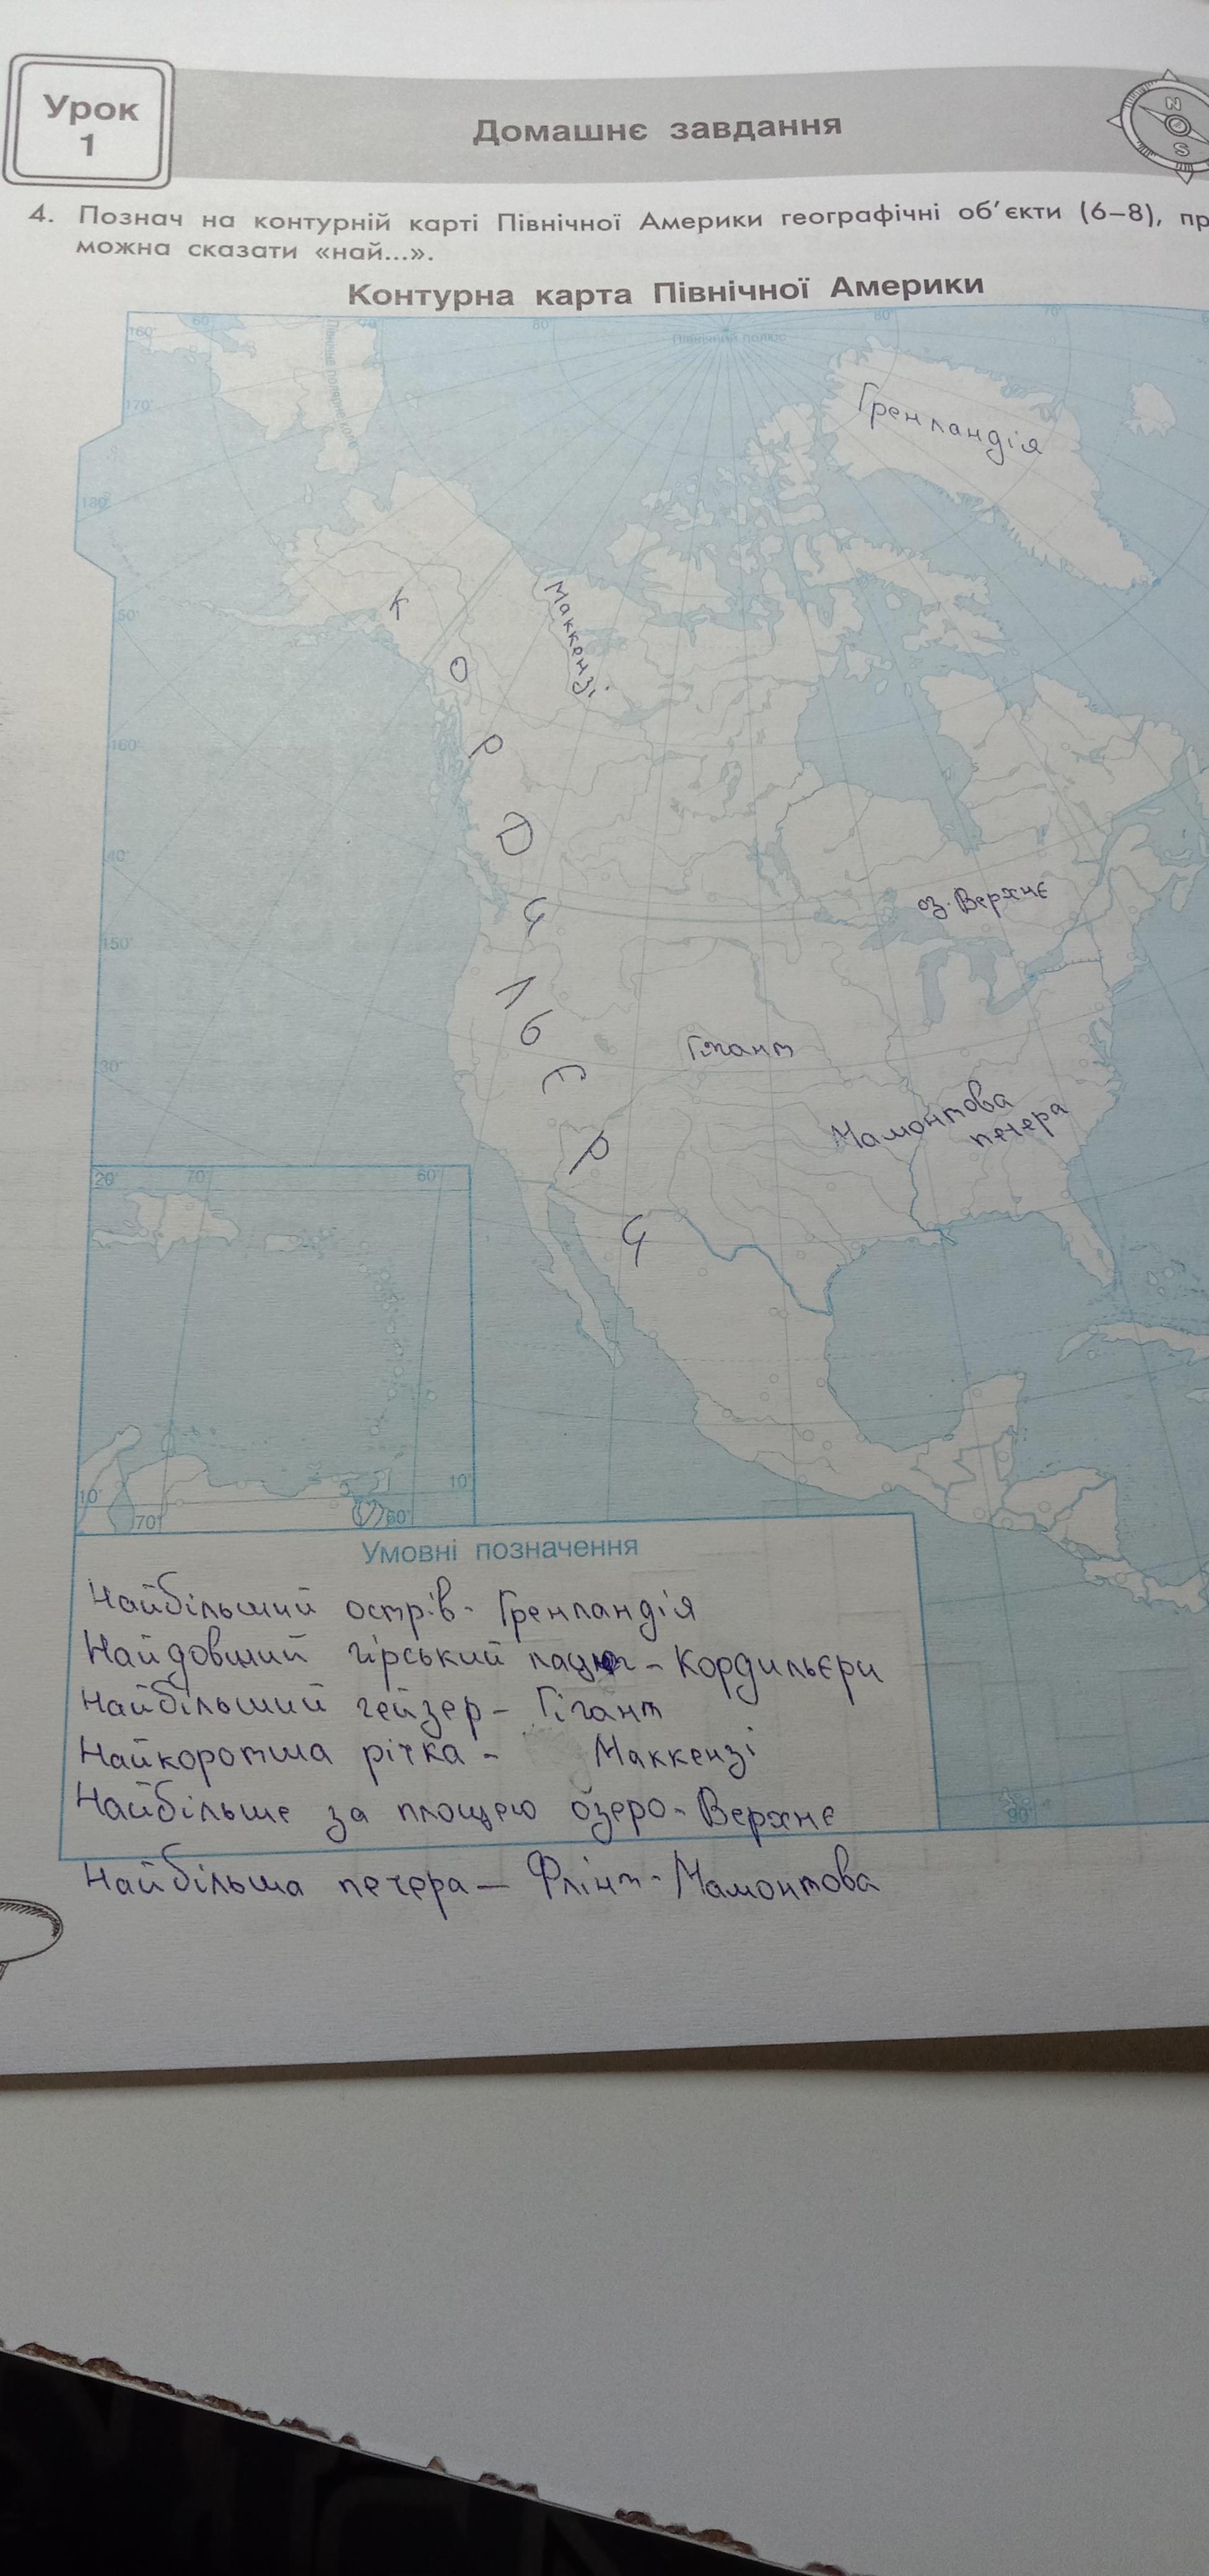 Урок
1
Домашнє завдання
4. Познач на контурній карті Північної Америки географічні об'єкти (6–8), пр
можна сказати «най...».
Контурна карта Північної Америки
160°
60°
70°
80°
80°
70°
Північний полюс
170°
Північне полярне коло
Гренландія
180°
50°
К О Р Д И Л Ь Є Р И
Маккензі
160°
40°
оз. Верхнє
150°
30°
Гігант
Мамонтова
печера
20°
70°
60°
10°
10°
70°
60°
Умовні позначення
Найбільший острів - Гренландія
Найдовший гірський - Кордильєри
Найбільший гейзер - Гігант
Найкоротша річка - Маккензі
Найбільше за площею озеро - Верхнє
90°
Найбільша печера — Флінт-Мамонтова
N
S